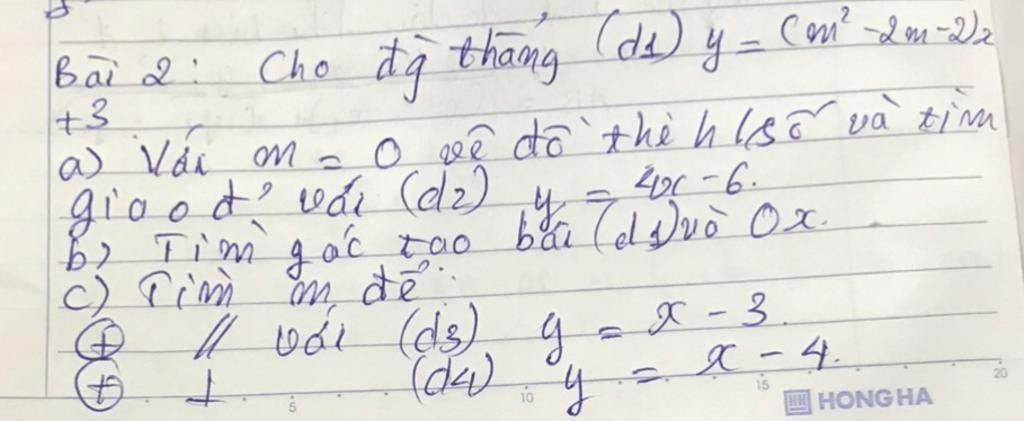 Bài 2 : Cho đg thẳng (d1) y = (m² - 2m - 2)x
+3
a) Với m = 0 vẽ đồ thị h/số và tìm
giao đ' với (d2) y = 2x - 6.
b) Tìm góc tạo bởi (d1) và Ox.
c) Tìm m để :
⊕ // với (d3) y = x - 3.
⊕ ⊥ (d4) y = x - 4.
5 10 15 20
HH HONG HA